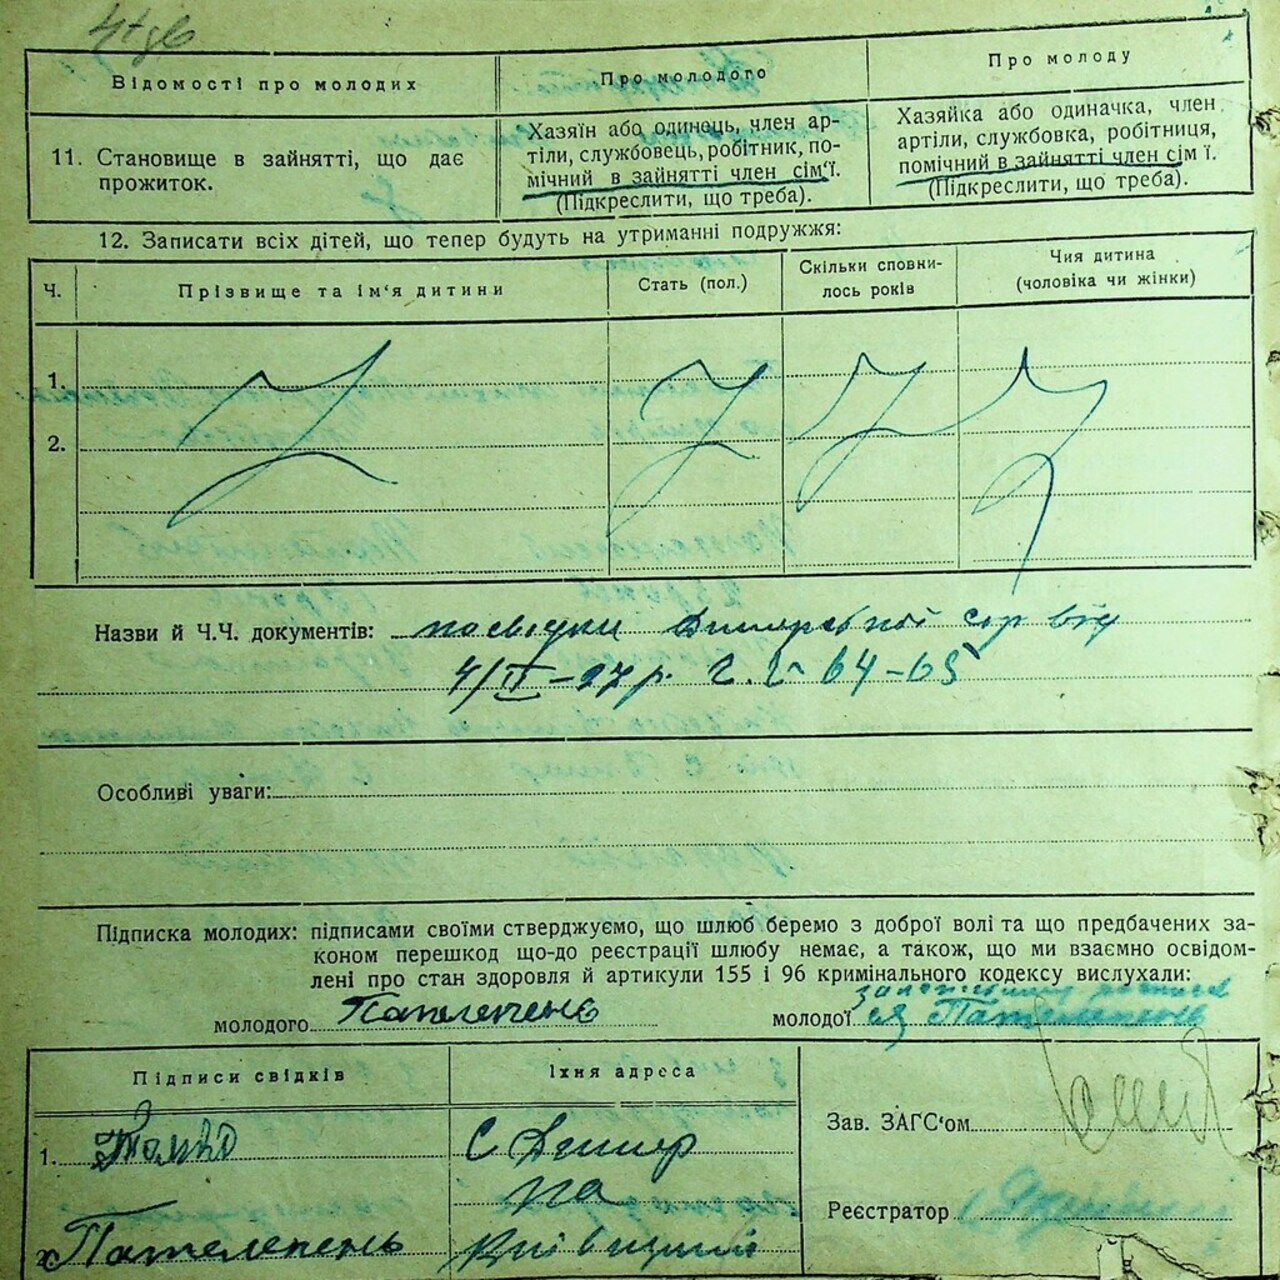 Відомості про молодих
Про молодого
Про молоду
11. Становище в зайнятті, що дає
прожиток.
Хазяїн або одинець, член ар-
тіли, службовець, робітник, по-
мічний в зайнятті член сім‘ї.
(Підкреслити, що треба).
Хазяйка або одиначка, член
артіли, службовка, робітниця,
помічний в зайнятті член сім ї.
(Підкреслити, що треба).
12. Записати всіх дітей, що тепер будуть на утриманні подружжя:
Ч.
Прізвище та ім‘я дитини
Стать (пол.)
Скільки сповни-
лось років
Чия дитина
(чоловіка чи жінки)
1.
2.
Назви й Ч.Ч. документів: посвідки Димерської с/р від
4/II-27 р. 64-65
Особливі уваги:
Підписка молодих: підписами своїми стверджуємо, що шлюб беремо з доброї волі та що предбачених за-
коном перешкод що-до реєстрації шлюбу немає, а також, що ми взаємно освідом-
лені про стан здоровля й артикули 155 і 96 кримінального кодексу вислухали:
молодого Пателепень
молодої Пателепень
Підписи свідків
Їхня адреса
1.
С Димер
на
Київщині
Пателепень
Зав. ЗАГС‘ом
Реєстратор